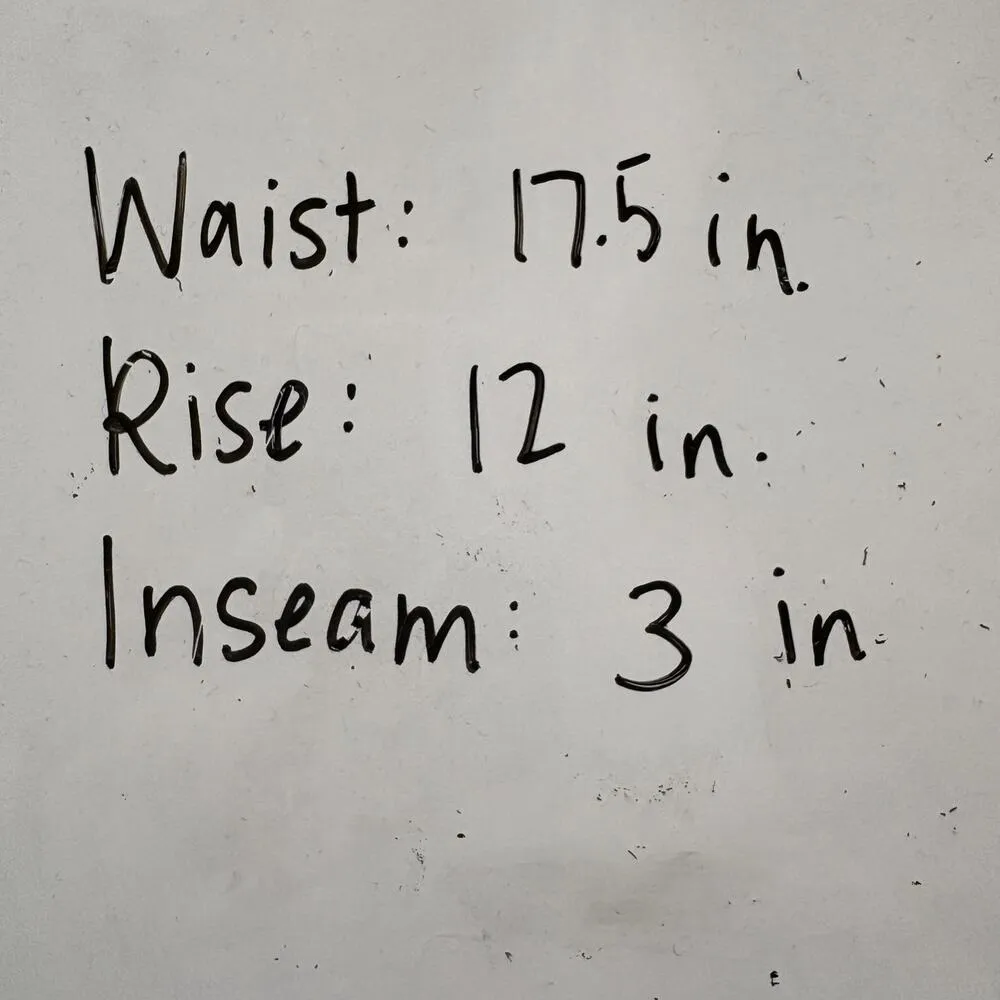 Waist: 17.5 in.
Rise: 12 in.
Inseam: 3 in.